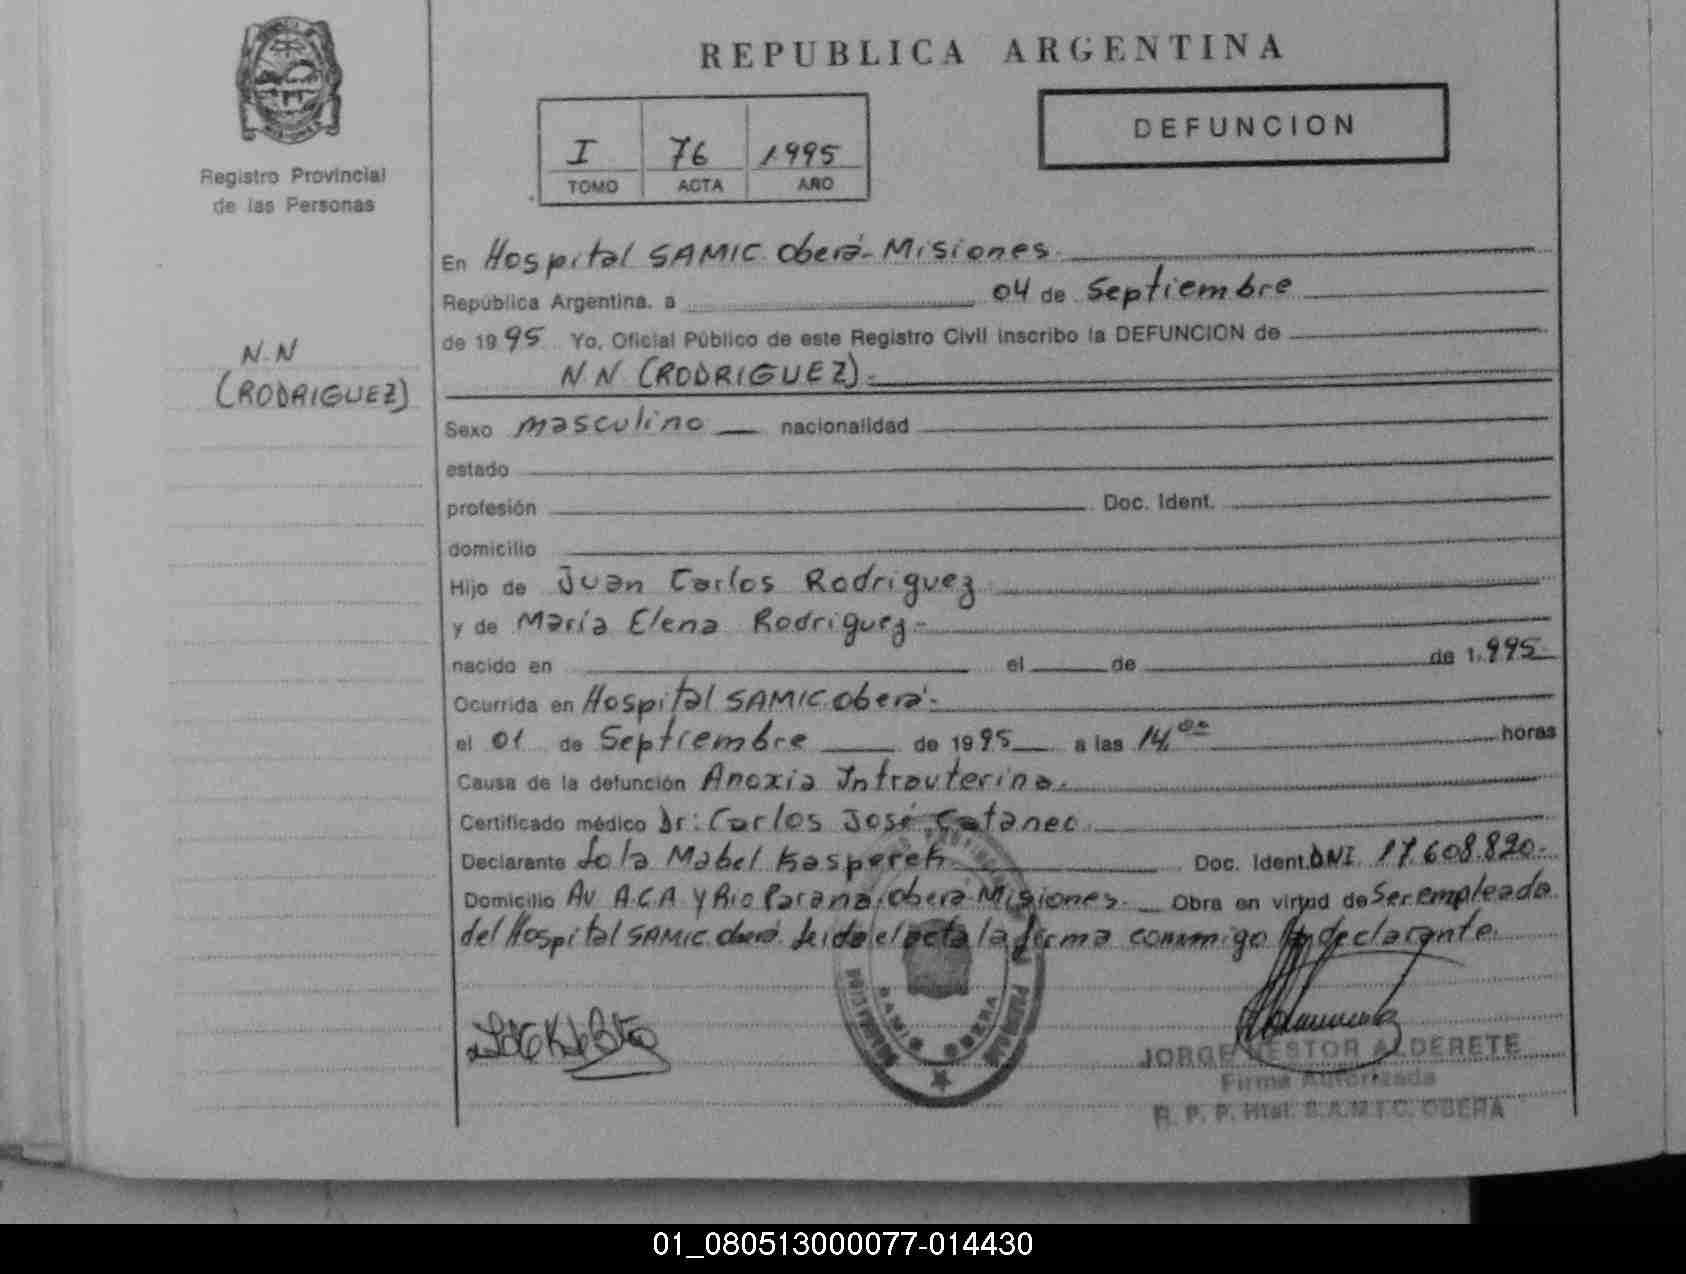 REPUBLICA ARGENTINA
I 76 1995
TOMO ACTA AÑO
DEFUNCION
Registro Provincial
de las Personas
N.N
(RODRIGUEZ)
En Hospital SAMIC. Oberá - Misiones.
República Argentina, a 04 de Septiembre
de 1995 Yo, Oficial Público de este Registro Civil inscribo la DEFUNCION de
N N (RODRIGUEZ).-
Sexo masculino nacionalidad
estado
profesión Doc. Ident.
domicilio
Hijo de Juan Carlos Rodriguez
y de María Elena Rodriguez.-
nacido en el de de 1.995
Ocurrida en Hospital SAMIC. Oberá.-
el 01 de Septiembre de 1995 a las 14,00 horas
Causa de la defunción Anoxia Intrauterina.
Certificado médico Dr: Carlos José Cataneo
Declarante Lola Mabel Kasperek Doc. Ident. DNI. 17.608.820.-
Domicilio Av A.C.A y Rio Parana. Oberá Misiones. Obra en virtud de Ser empleada
del Hospital SAMIC. Oberá. Leida el acta la firma conmmigo declarante.
SAMIC OBERA
JORGE NESTOR ALDERETE
Firma Autorizada
R. P. P. Htal. S.A.M.I.C. OBERA
01_080513000077-014430